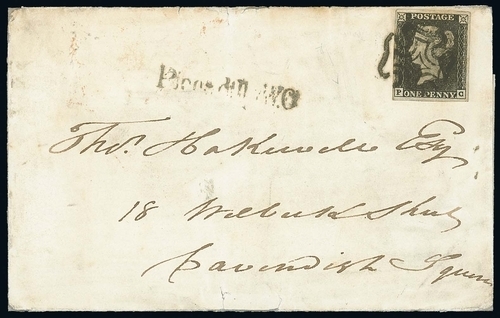 POSTAGE
P ONE PENNY C
Piccadilly W.O
Thos. Hakewill Esq
18 Welbeck Street
Cavendish Square